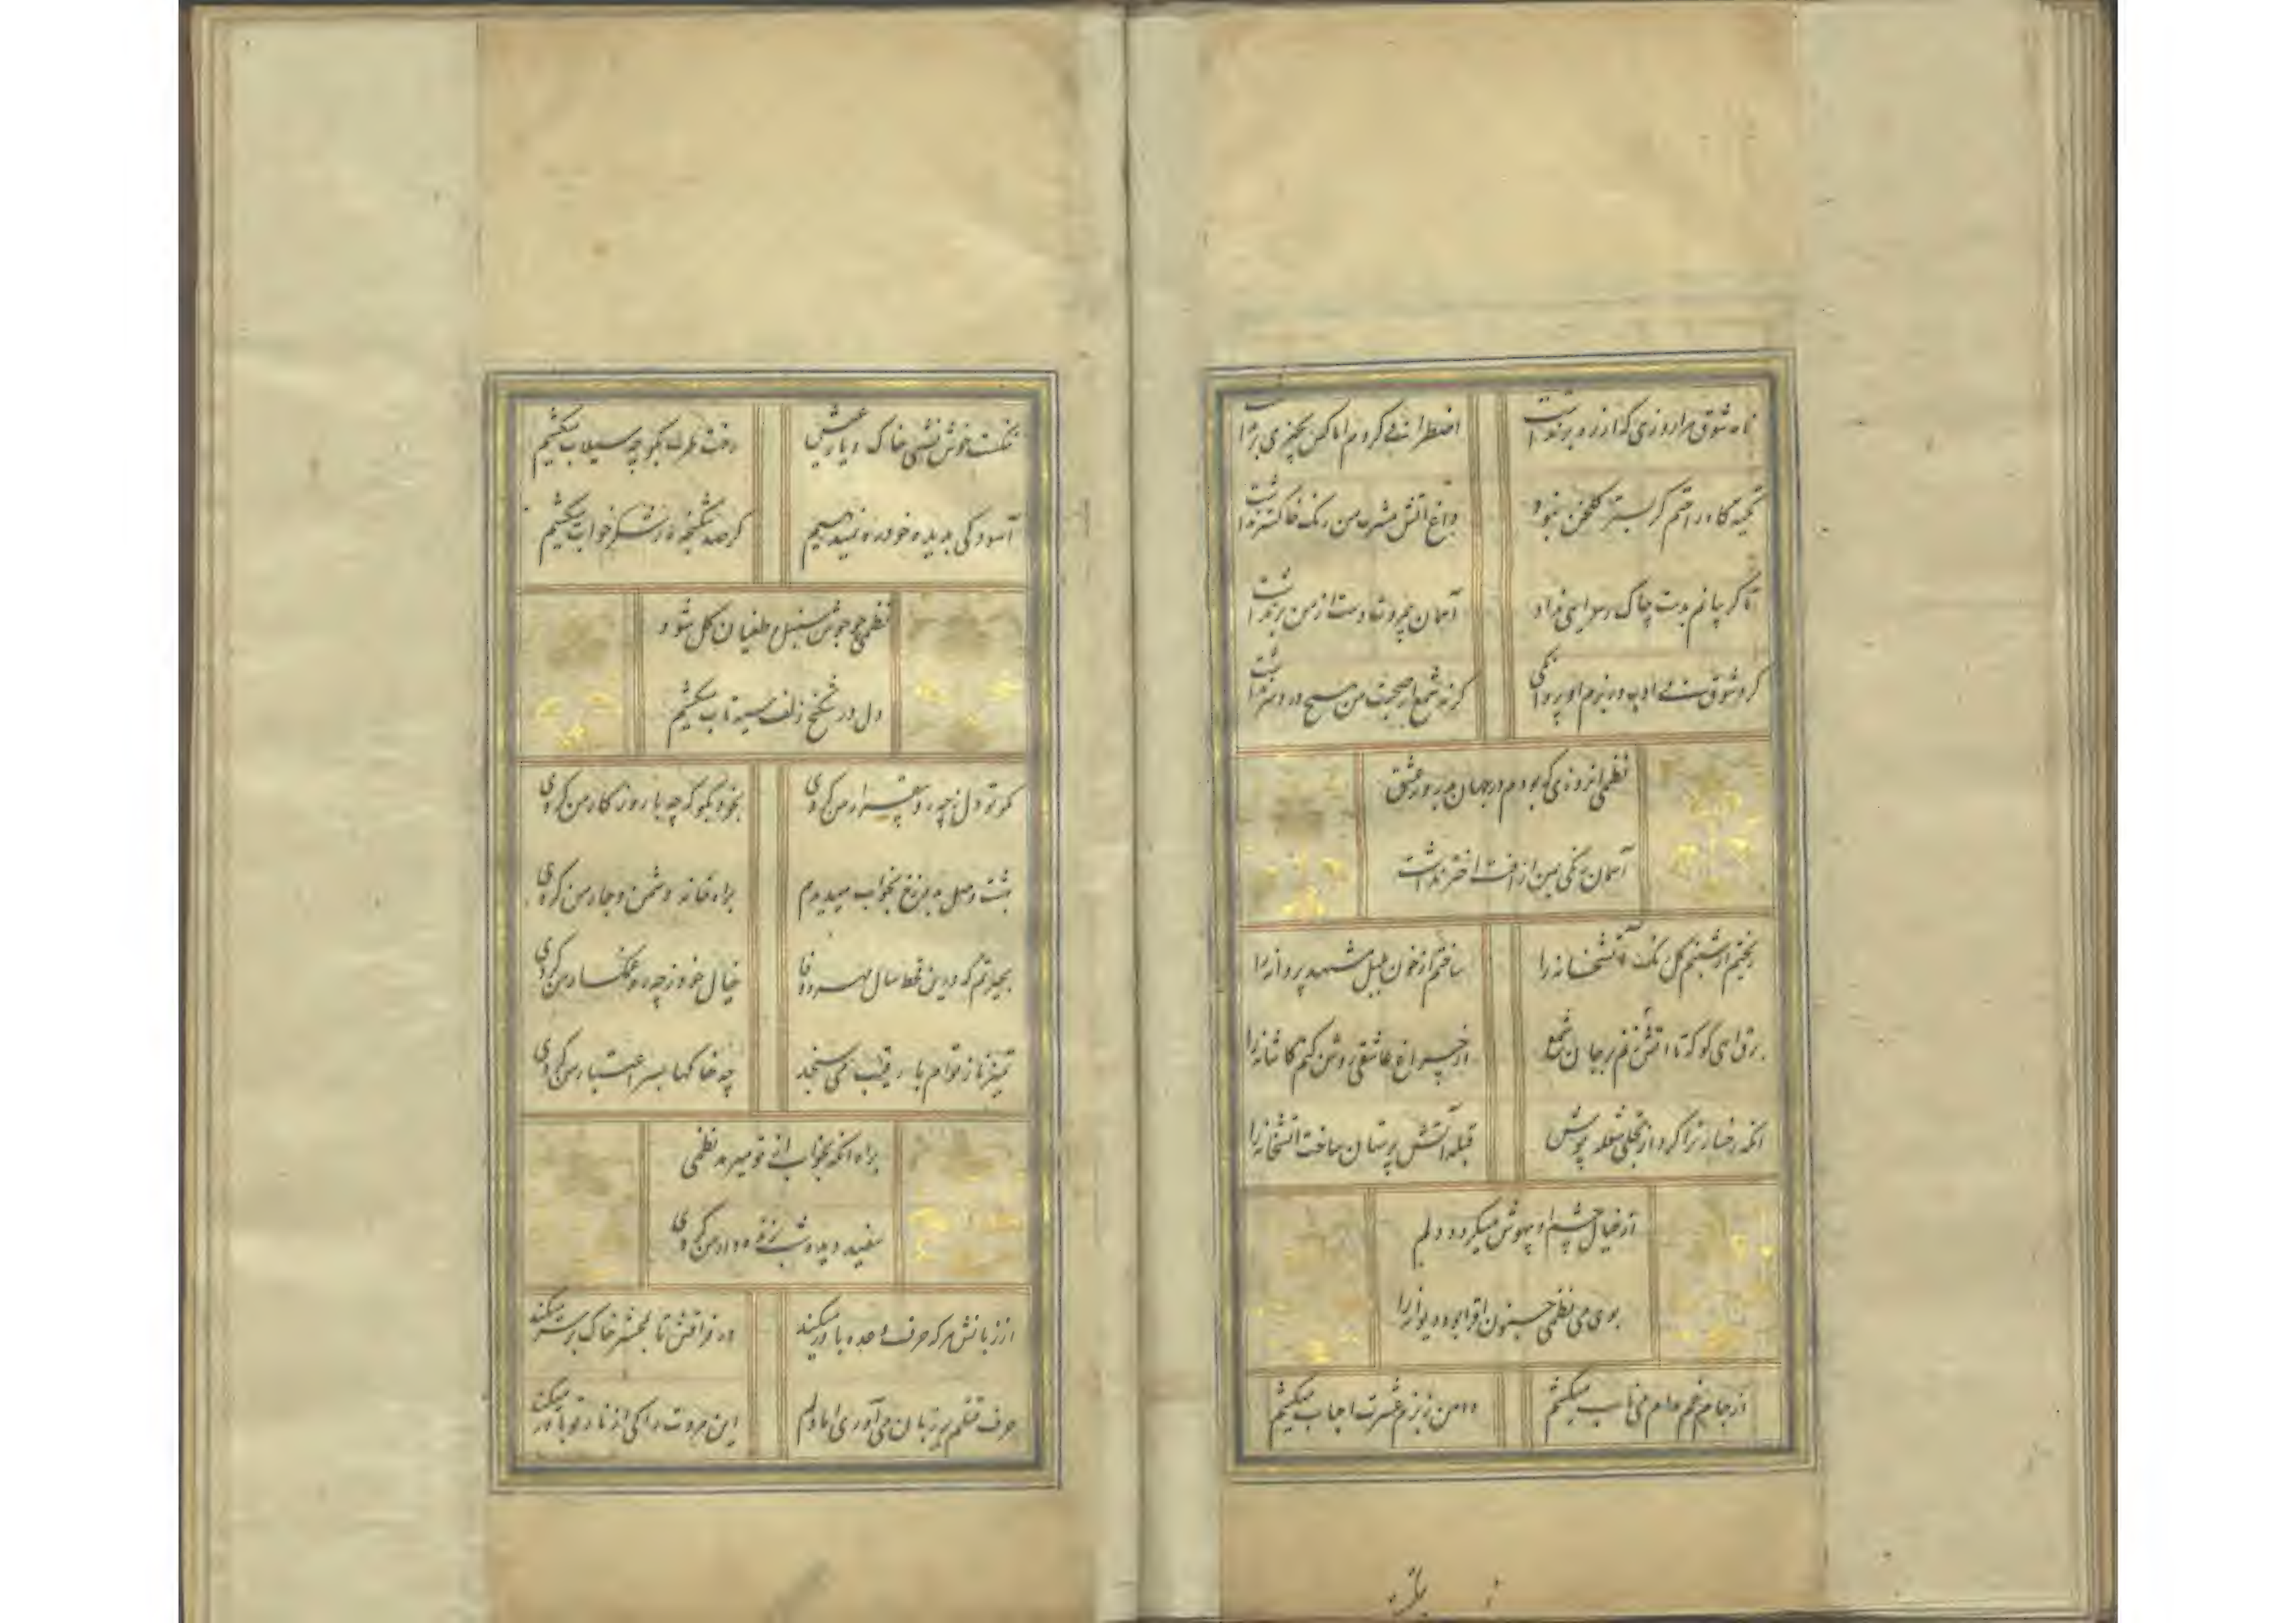 نامه شوق مرا روزی که از زر پر نداشت
اضطرابی کردم اما کس بچیزی بر نداشت
تکیه گاه راحتم گر بستر گلخن نبود
داغ آتش مشرب من رنگ خاکستر نداشت
تا گریبانم بدست چاک رسوایی نداد
آسمان جبر و تا دست از من بر نداشت
کرد شوقت بی ادب در بزم او پروانگی
گرنه شمع از صحبت من هیچ درد سر نداشت
نظمی از روزی که بودم در جهان پرورد عشق
آسمان رنگی بمن از آفت اختر نداشت
ریختم از شبنم گل رنگ آتشخانه را
ساختم از خون بلبل مشهد پروانه را
برق آهی کو که تا آتش زنم بر جان شمع
از چراغ عاشقی روشن کنم کاشانه را
آنکه رخسار ترا کرد از تجلی شعله پوش
قبله آتش پرستان ساخت آتشخانه را
از خیال چشم او بیهوش میگردد دلم
بوی می نظمی جنون افزا بود دیوانه را
از جام غم مدام می ناب میکشیم
دامن ز بزم عشرت احباب میکشیم
ننگست خوش نشینی خاک دیار عیش
رخت طرب بکوچه سیلاب میکشیم
آسودگی بدیده خود ره نمیدهیم
گر صد شکنجه از شکر خواب میکشیم
نظمی چو جوش سنبل طغیان گل شود
دل در شکنج زلف سیه تاب میکشیم
کبوتر دل ز چه رو بیقرار من کردی
بخود بگو که چه با روزگار من کردی
بشب وصل بفرغ بخواب میدیدم
براه خانه دشمن دچار من کردی
بحیرتم که درین قحط سال مهر و وفا
خیال خود ز چه رو غمگسار من کردی
تمیز ناز توام با رقیب می سنجد
چه خاکها بسر اعتبار من کردی
براه آنکه بخواب آئی تو میرد نظمی
سفید دیده شب زنده دار من کردی
از زبانش هر که حرف وعده باور میکند
در فراقش تا بمحشر خاک بر سر میکند
حرف قتلم بر زبان می آوری اما دلم
این مروت را کی از ناز تو باور میکند